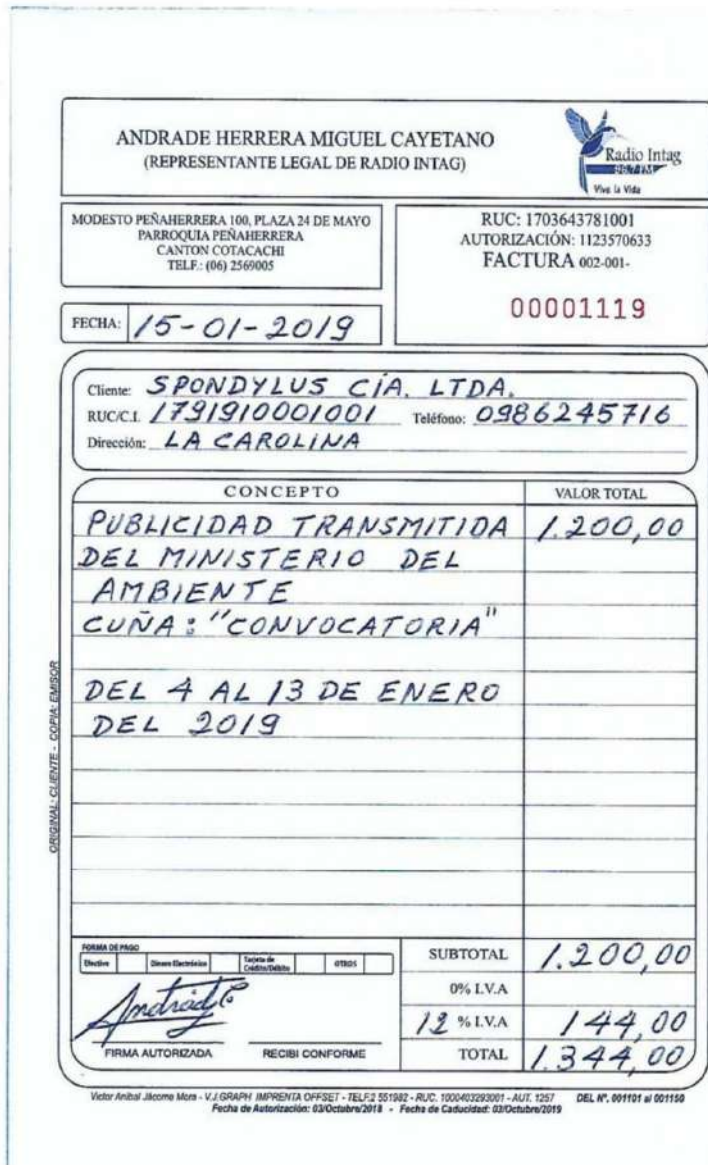 ANDRADE HERRERA MIGUEL CAYETANO
(REPRESENTANTE LEGAL DE RADIO INTAG)
Radio Intag
96.7 FM
Vive la Vida
MODESTO PEÑAHERRERA 100, PLAZA 24 DE MAYO
PARROQUIA PEÑAHERRERA
CANTON COTACACHI
TELF.: (06) 2569005
RUC: 1703643781001
AUTORIZACIÓN: 1123570633
FACTURA 002-001-
00001119
FECHA: 15-01-2019
Cliente: SPONDYLUS CÍA. LTDA.
RUC/C.I. 1791910001001 Teléfono: 0986245716
Dirección: LA CAROLINA
CONCEPTO VALOR TOTAL
PUBLICIDAD TRANSMITIDA 1.200,00
DEL MINISTERIO DEL
AMBIENTE
CUÑA: "CONVOCATORIA"
DEL 4 AL 13 DE ENERO
DEL 2019
ORIGINAL: CLIENTE - COPIA: EMISOR
FORMA DE PAGO
Efectivo Dinero Electrónico Tarjeta de Crédito/Débito OTROS
SUBTOTAL 1.200,00
0% I.V.A
12 % I.V.A 144,00
TOTAL 1.344,00
FIRMA AUTORIZADA RECIBI CONFORME
Victor Anibal Jácome Mora - V.J.GRAPH IMPRENTA OFFSET - TELF.2 551982 - RUC. 1000403293001 - AUT. 1257 DEL Nº. 001101 al 001150
Fecha de Autorización: 03/Octubre/2018 - Fecha de Caducidad: 03/Octubre/2019